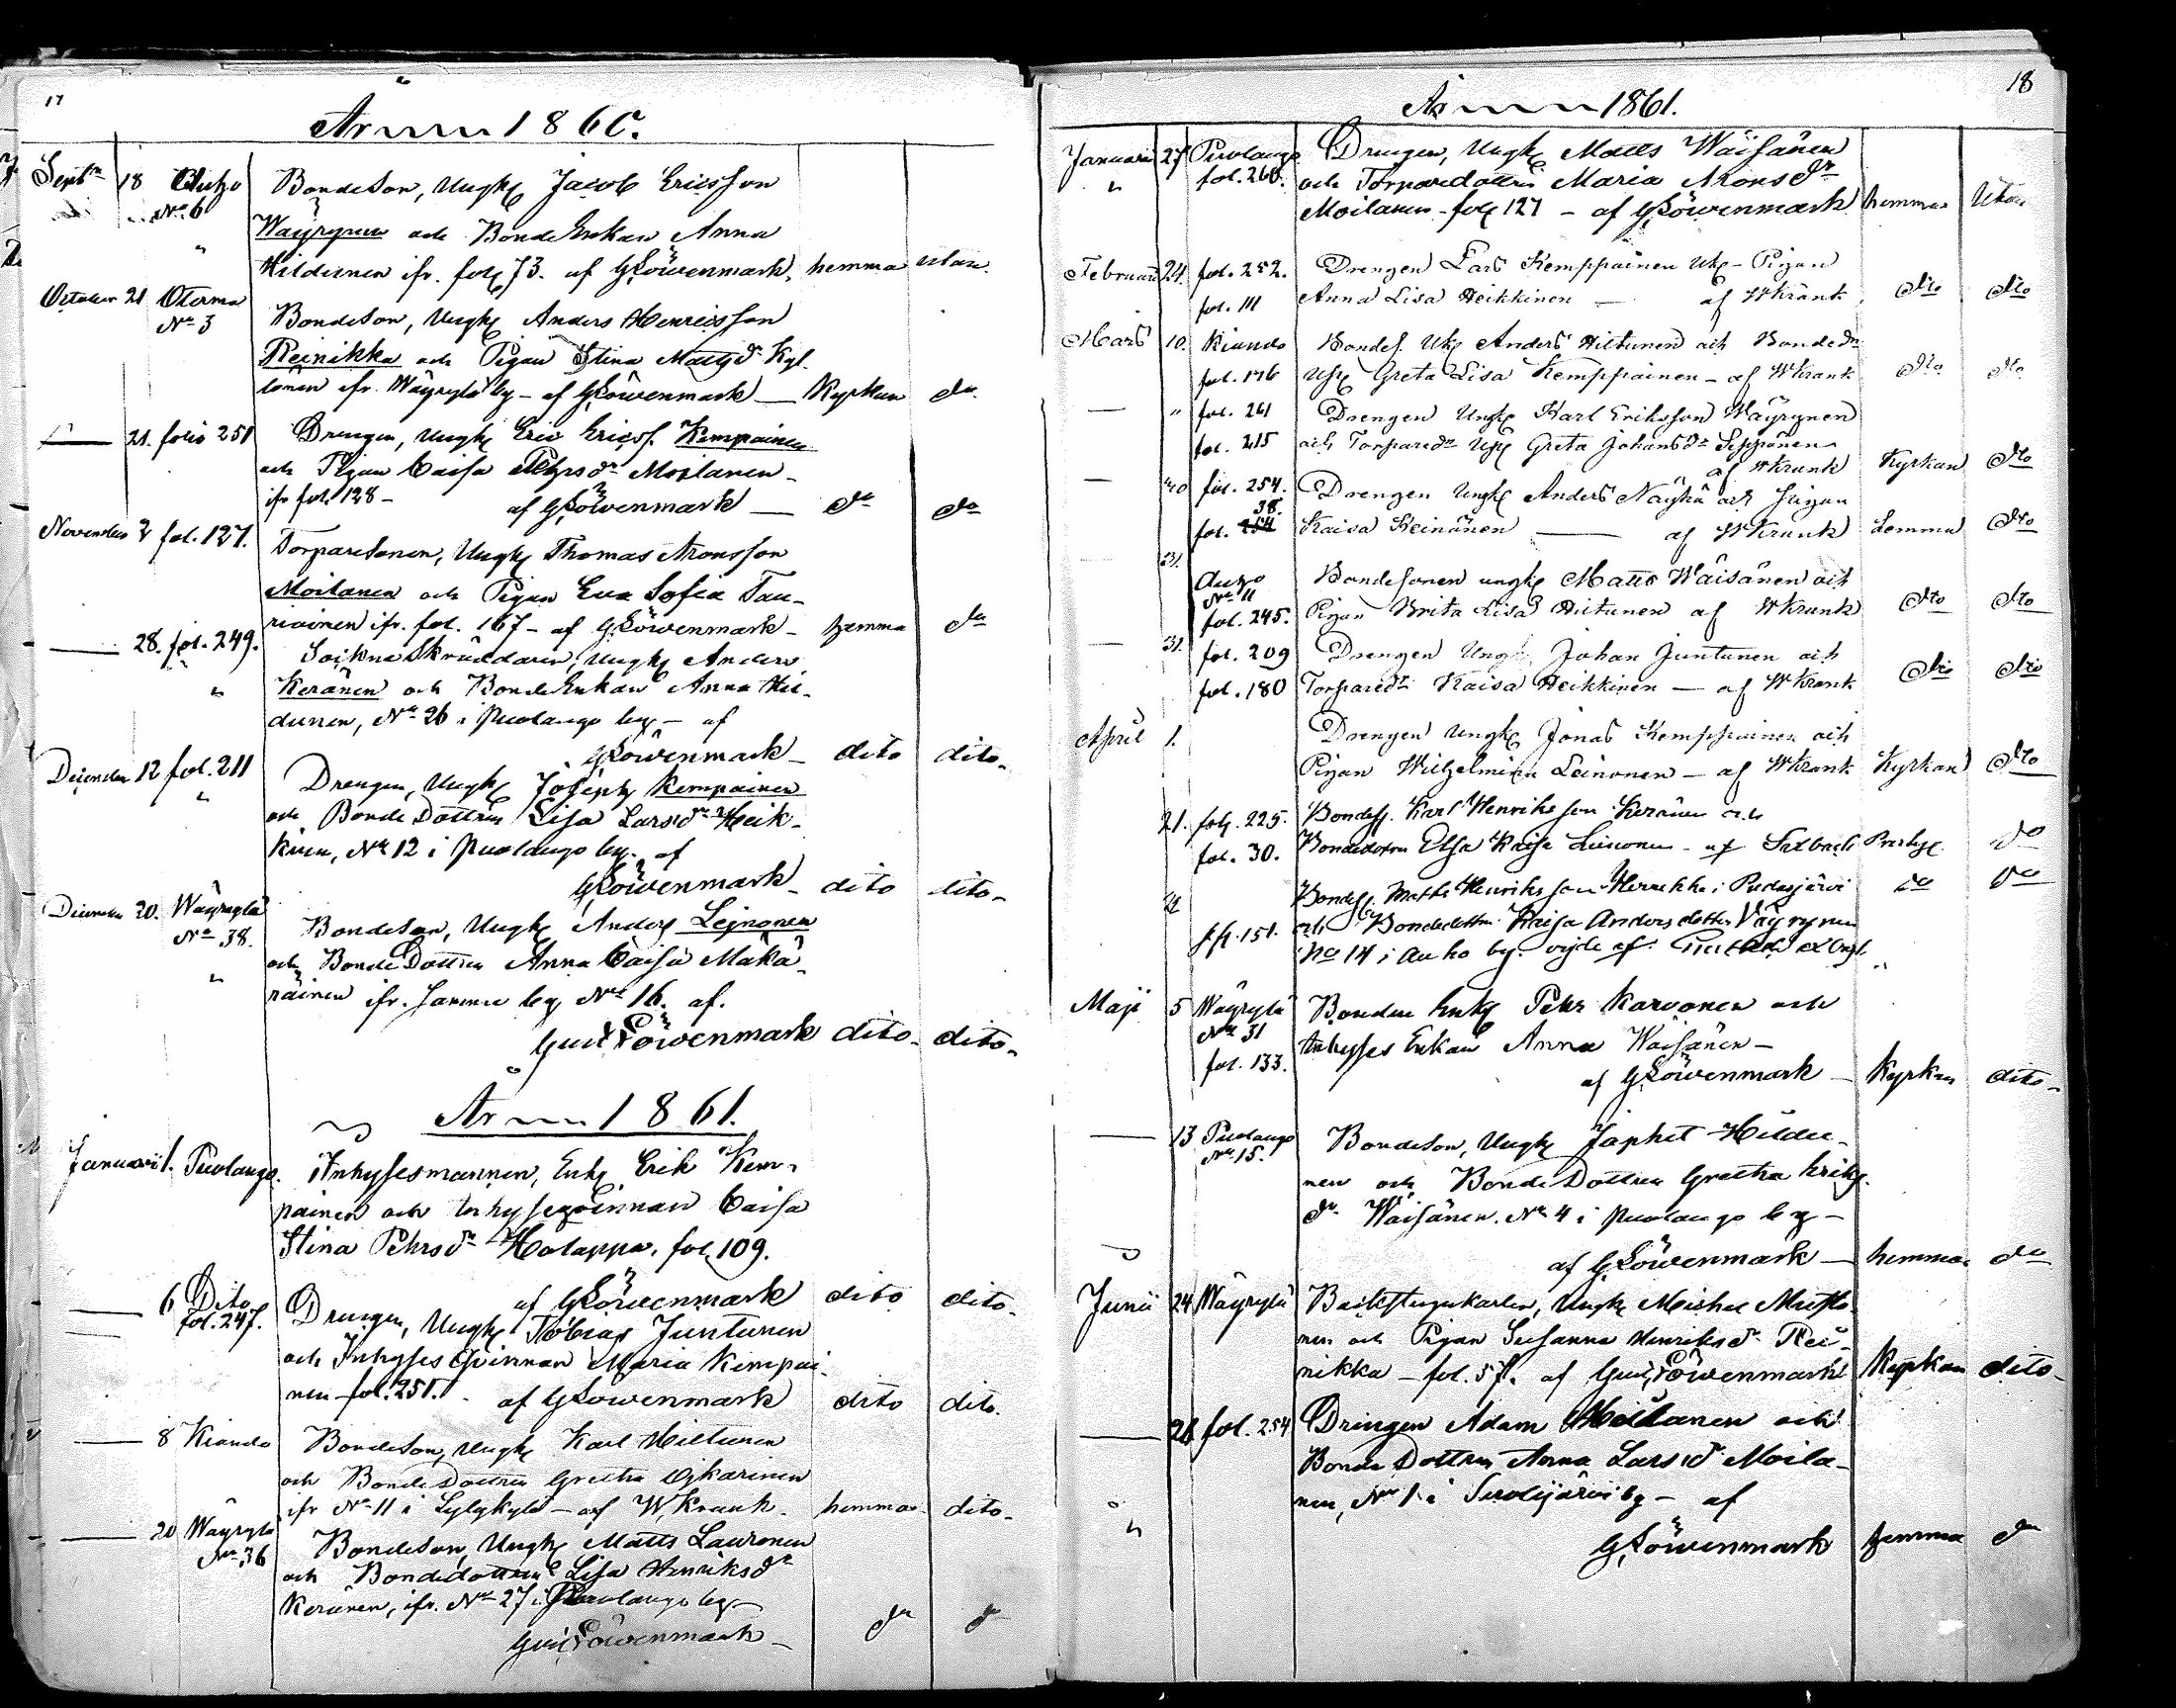 17
År 1860.
Septr 18 Auho Bondeson, Ungk Jacob Ericsson
No 6 Wäyrynen och BondeEnkan Anna
" Hildunen ifr. fol. 73. af GLöwenmark, hemma utan.
October 21 Oterma Bondeson, Ungk Anders Henricsson
No 3 Reinikka och Pigan Stina Mattsdr Kyl-
lönen ifr. Wäyrylä by - af GLöwenmark — Kyrkan do
— 21. folio 251 Drengen, Ungk Eric Ericss. Kempainen
och Pigan Caisa Pehrsdr Moilanen -
ifr fol. 128 - af GLöwenmark — do do
November 2 fol. 127. Torparesonen, Ungk Thomas Aronsson
Moilanen och Pigan Eva Sofia Tau-
riainen ifr. fol. 167 - af GLöwenmark - hemma do
— 28. fol. 249. Sockne Skräddaren, Ungk Anders
" Keränen och BondeEnkan Anna Hil-
dunen, No 26 i Puolango by - af
GLöwenmark - dito dito -
December 12 fol. 211 Drengen, Ungk Joseph Kempainen
" och BondeDottren Lisa Larsdr Heik-
kinen, No 12 i Puolango by. af
GLöwenmark - dito dito -
December 20. Wäyrylä Bondeson, Ungk Anders Leinonen
No 38. och BondeDottren Anna Caisa Mäkä-
" räinen ifr. samme by No 16. af.
Gust Löwenmark dito - dito -
År 1861.
Januari 1. Puolango. Inhysesmannen, Enkl Erik Kem-
painen och Inhyseqvinnan Caisa
Stina Pehrsdr Holappa, fol. 109.
af GLöwenmark dito dito -
— 6 Dito Drengen, Ungk Tobias Juntunen
fol. 247. och Inhyses Qvinnan Maria Kempai-
nen fol. 251. - af GLöwenmark dito dito.
— 8 Kiando Bondeson, Ungk Karl Hiltunen
och BondeDottren Gretha Ojkarinen
ifr No 11 i Lylykylä - af W, Krank - hemma - dito -
— 20 Wäyrylä Bondeson, Ungk Matts Lauronen
No 36 och Bondedottren Lisa Henriksdr
Keränen, ifr. No 27 i Puolango by -
Gust Löwenmark - do do
18
År 1861.
Januari 27 Puolango Drengen, Ungk Matts Wäisänen
" fol. 260. och Torparedottren Maria Aronsdr
Moilanen - fol. 127 - af GLöwenmark hemma utan
Februari 24. fol. 252. Drengen Lars Kemppainen Uk - Pigan
fol. 111 Anna Lisa Heikkinen — af WKrank dto dto
Mars 10. Kiando Bondes. Uk Anders Hiltunen och Bondedr
fol. 176 Greta Lisa Kemppainen - af WKrank dto dto
— " fol. 261 Drengen Ungk Karl Eriksson Wäyrynen
fol. 215 och Torparedr Greta Johansdr Seppänen
af WKrank Kyrkan dto
— fol. 254. Drengen Ungk Anders Näykä och Pigan
fol. 38. Kaisa Keinänen — af WKrank hemma dto
31. Auho Bondesonen ungk Matts Wäisänen och
No 11
fol. 245. Pigan Brita Lisa Hiltunen af WKrank dto dto
— 31. fol. 209 Drengen Ungk Johan Juntunen och
fol. 180 Torparedr Kaisa Heikkinen — af WKrank dto dto
April 1. Drengen Ungk Jonas Kemppainen och
Pigan Wilhelmina Leinonen - af WKrank Kyrkan dto
21. fol. 225. Bondess. Karl Henriksson Keränen och
fol. 30. Bondedottren Elsa Kaisa Leinonen - af do
21 Bondess. Matts Henriksson i Pudasjärvi do do
fol. 151. och Bondedottren Kaisa Andersdotter Väyrynen
No 14 i Auho by. vigde af
Maji 5 Wäyrylä Bonden Enkl Pehr Karvonen och
No 31 Inhyses Enkan Anna Wäisänen -
fol. 133. af GLöwenmark - Kyrkan dito -
— 13 Puolango Bondeson, Ungk Japhet Hildu-
No 15. nen och BondeDottren Gretha Eriks-
dr Wäisänen. No 4 i Puolango by -
af GLöwenmark — hemma do
Junii 24 Wäyrylä Backstugukarlen, Ungk Michel Musto-
nen och Pigan Susanna Henriksdr Rei-
nikka - fol. 57. af Gust Löwenmark Kyrkan dito -
— 28 fol. 254 Drengen Adam Moilanen och
BondeDottren Anna Larsdr Moila-
nen, No 1 i Suolijärvi by - af
" GLöwenmark hemma do